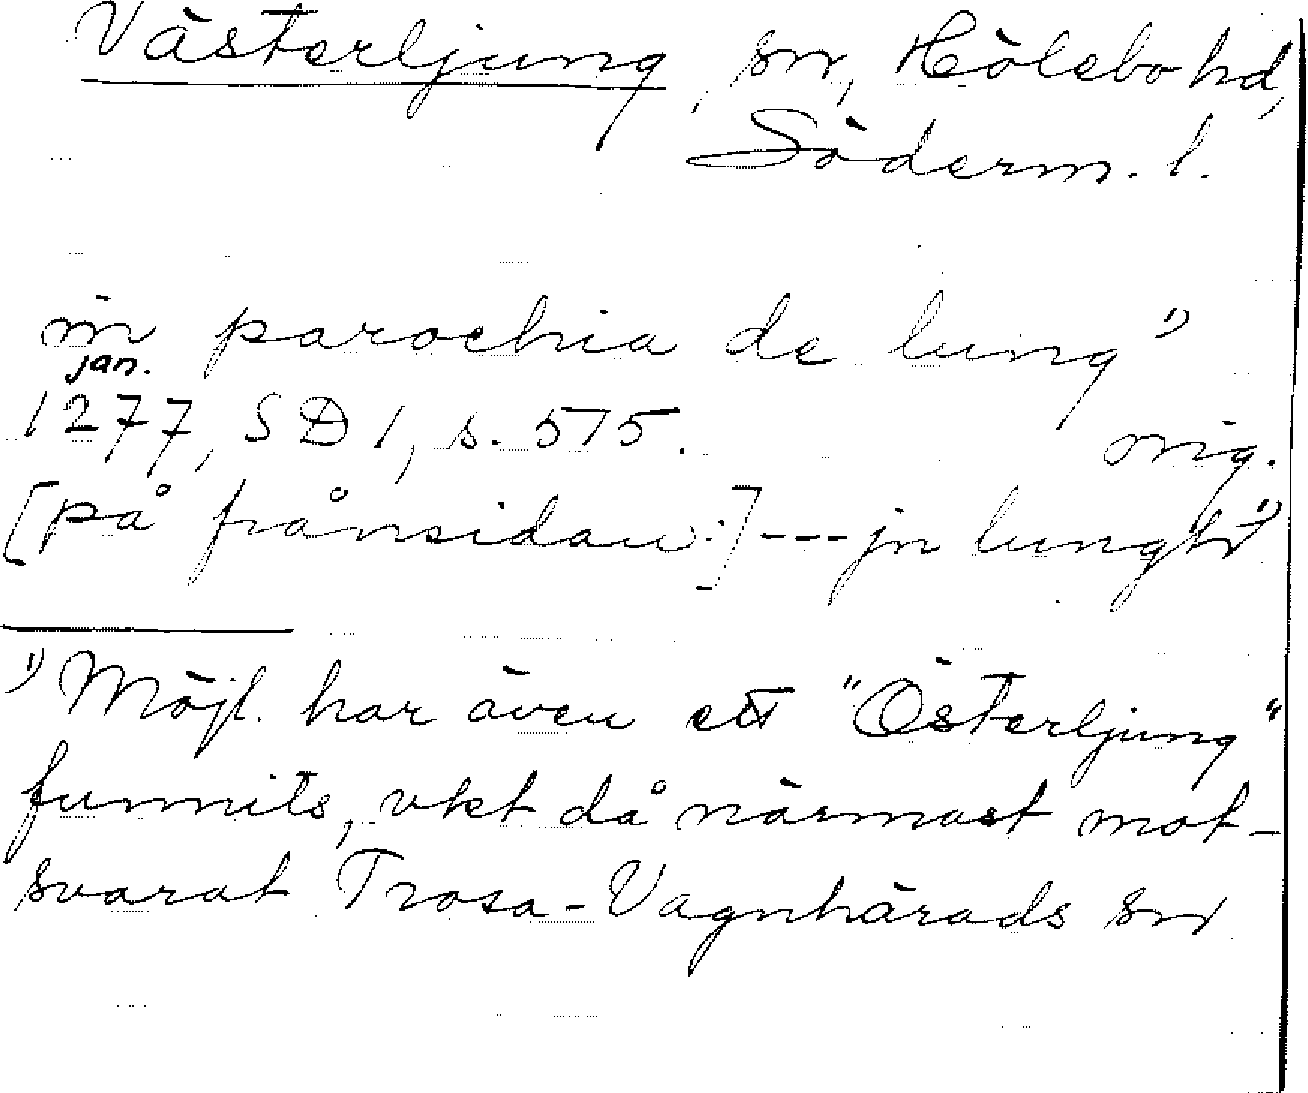 Västerljung, sn, Hölebo hd,
Söderm. l.
in parochia de lung 1)
jan.
1277, SD 1, s. 575.
orig.
[på frånsidan:] --- jn lung 1)
1) Möjl. har även ett "Österljung"
funnits, vkt då närmast mot-
svarat Trosa-Vagnhärads sn